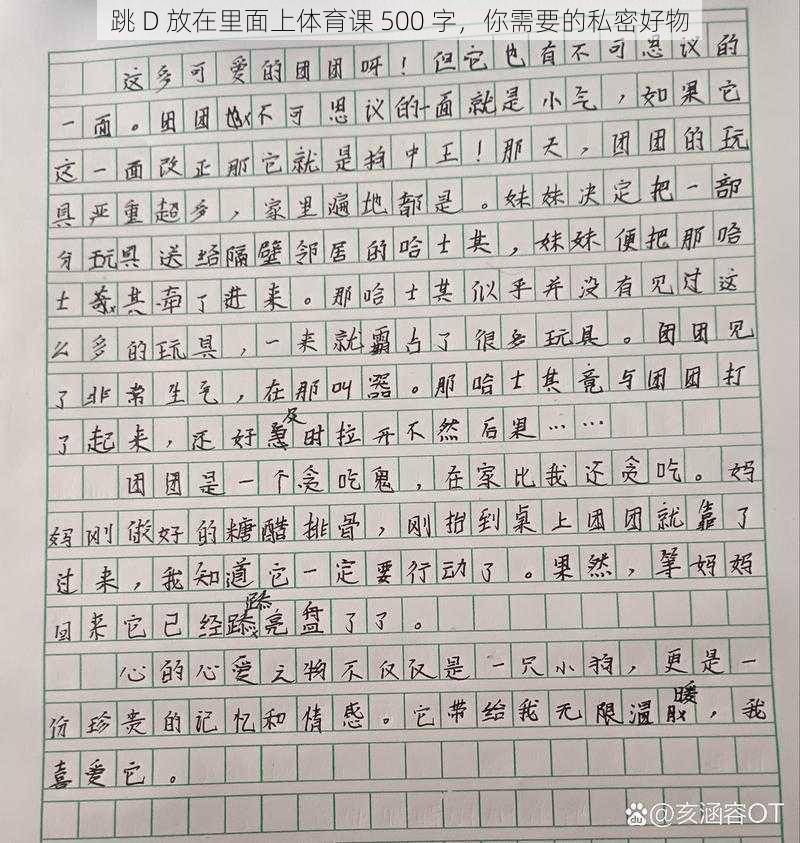 跳 D 放在里面上体育课 500 字，你需要的私密好物
这多可爱的团团呀！但它也有不可思议的
一面。团团不可思议的一面就是小气，如果它
这一面改正那它就是狗中王！那天，团团的玩
具严重超多，家里遍地都是。妹妹决定把一部
分玩具送给隔壁邻居的哈士其，妹妹便把那哈
士其牵了进来。那哈士其似乎并没有见过这
么多的玩具，一来就霸占了很多玩具。团团见
了非常生气，在那叫器。那哈士其竟与团团打
了起来，还好及时拉开不然后果……
团团是一个贪吃鬼，在家比我还贪吃。妈
妈刚做好的糖醋排骨，刚抬到桌上团团就靠了
过来，我知道它一定要行动了。果然，等妈妈
回来它已经舔亮盘了了。
心的心爱之物不仅仅是一只小狗，更是一
份珍贵的记忆和情感。它带给我无限温暖，我
喜爱它。
Bai du @亥涵容OT